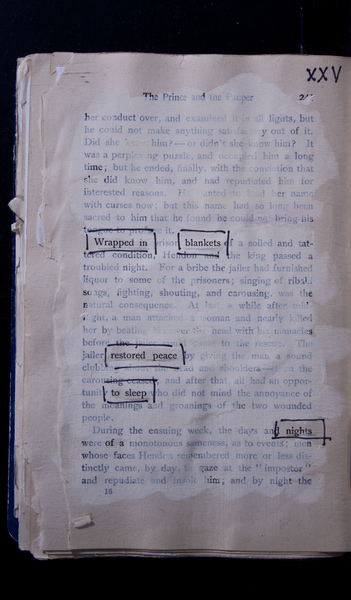 XXV
The Prince and the Pauper
her conduct over, and examined it in all lights, but
he could not make anything satisfactory out of it.
Did she know him?—or didn't she know him? It
was a perplexing puzzle, and occupied him a long
time; but he ended, finally, with the conviction that
she did know him, and had repudiated him for
interested reasons. He wanted to load her name
with curses now; but this name had so long been
sacred to him that he found he could not bring his
tongue to profane it.
Wrapped in prison blankets of a soiled and tat-
tered condition, Hendon and the king passed a
troubled night. For a bribe the jailer had furnished
liquor to some of the prisoners; singing of ribald
songs, fighting, shouting, and carousing, was the
natural consequence. At last, a while after mid-
night, a man attacked a woman and nearly killed
her by beating her over the head with his manacles
before the jailer could come to the rescue. The
jailer restored peace by giving the man a sound
clubbing about the head and shoulders—then the
carousing ceased; and after that, all had an oppor-
tunity to sleep who did not mind the annoyance of
the moanings and groanings of the two wounded
people.
During the ensuing week, the days and nights
were of a monotonous sameness, as to events; men
whose faces Hendon remembered more or less dis-
tinctly came, by day, to gaze at the "impostor"
and repudiate and insult him; and by night the
16